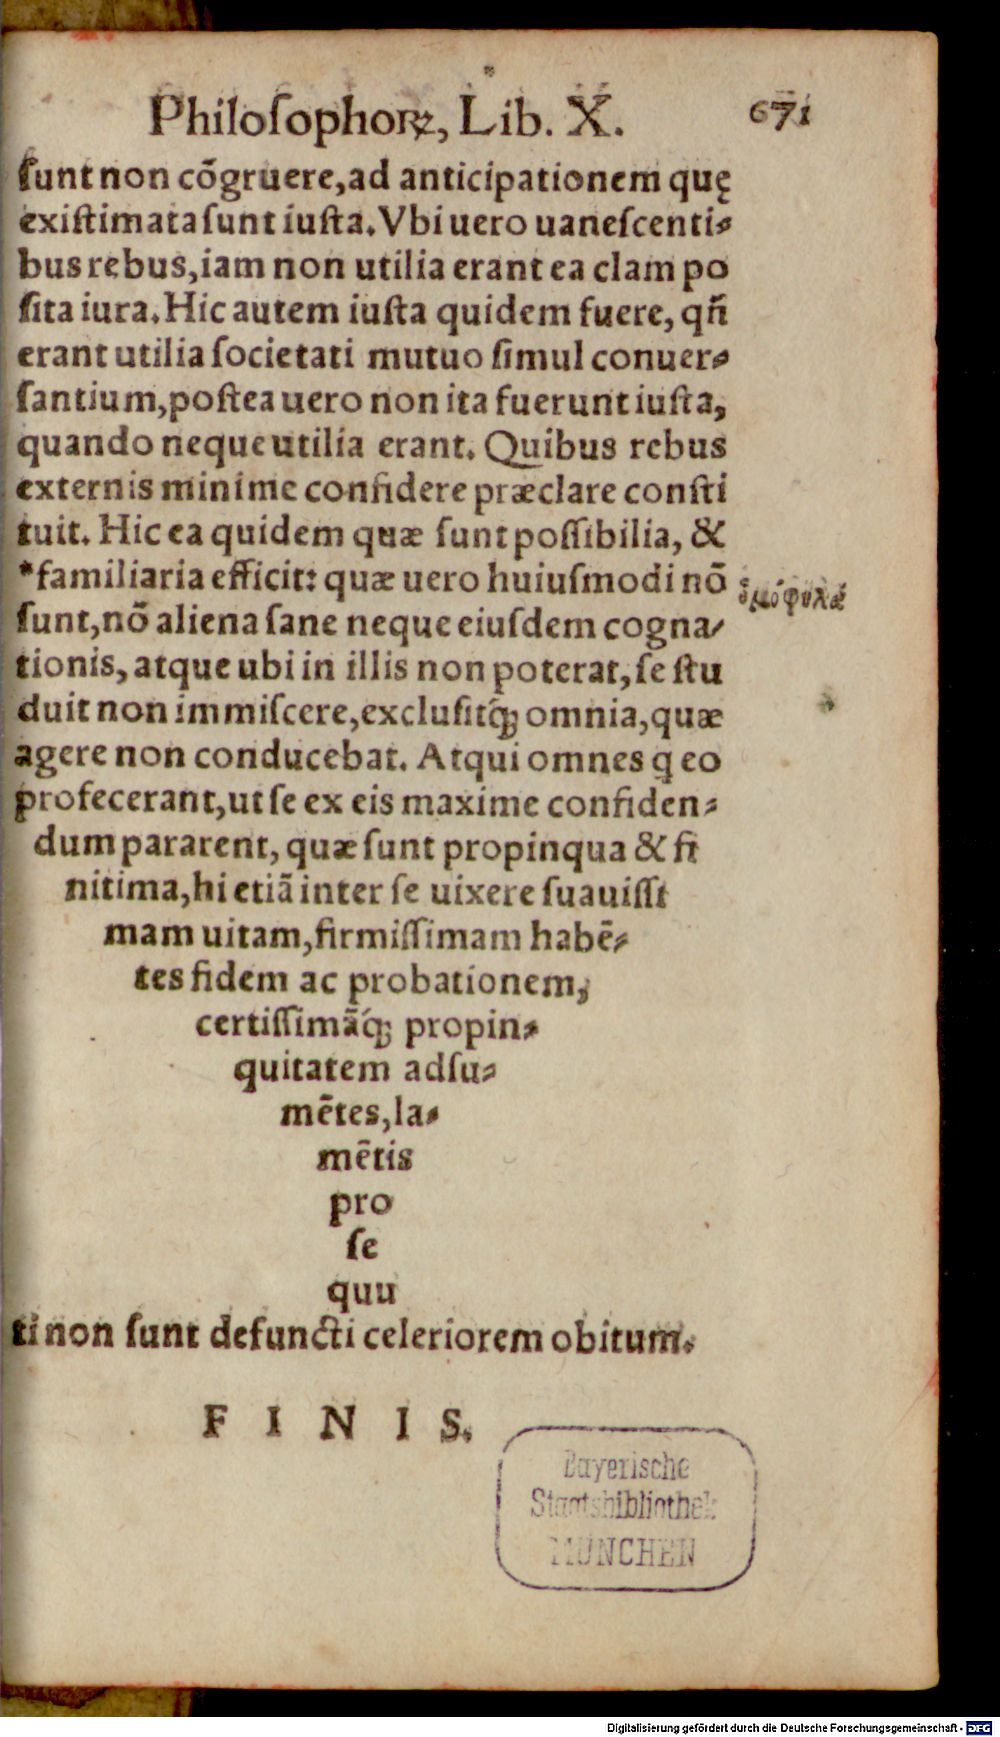 Philoſophoꝝ, Lib. X. 671
ſunt non cõgruere, ad anticipationem quę
exiſtimata ſunt iuſta. Vbi uero uaneſcenti⸗
bus rebus, iam non utilia erant ea clam po
ſita iura. Hic autem iuſta quidem fuere, qñ
erant utilia ſocietati mutuo ſimul conuer⸗
ſantium, poſtea uero non ita fuerunt iuſta,
quando neque utilia erant. Quibus rebus
externis minime confidere præclare conſti
tuit. Hic ea quidem quæ ſunt poſſibilia, &
*familiaria efficit: quæ uero huiuſmodi nõ
ὁμόφυλα
ſunt, nõ aliena ſane neque eiuſdem cogna⸗
tionis, atque ubi in illis non poterat, ſe ſtu
duit non immiſcere, excluſitq́ꝫ omnia, quæ
agere non conducebat. Atqui omnes q eo
profecerant, ut ſe ex eis maxime confiden⸗
dum pararent, quæ ſunt propinqua & fi
nitima, hi etiã inter ſe uixere ſuauiſſi
mam uitam, firmiſſimam habẽ⸗
tes fidem ac probationem,
certiſſimãq́ꝫ propin⸗
quitatem adſu⸗
mẽtes, la⸗
mẽtis
pro
ſe
quu
ti non ſunt defuncti celeriorem obitum.
F I N I S.
Bayerische
Staatsbibliothek
MÜNCHEN
Digitalisierung gefördert durch die Deutsche Forschungsgemeinschaft - DFG